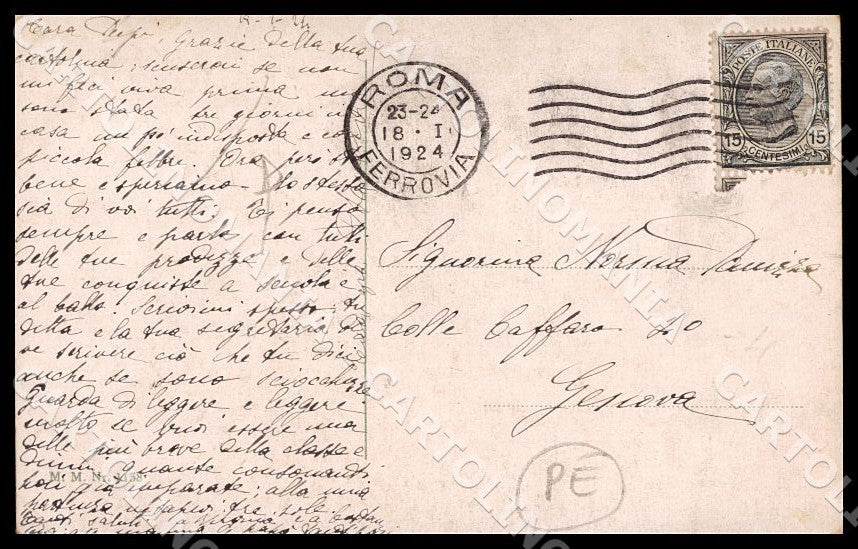 Cara Pupi, Grazie della tua
cartolina; scuserai se non
mi feci viva prima ma
sono stata tre giorni in
casa un po' indisposta e con
piccola febbre. Ora però sto
bene e speriamo lo stesso
sia di voi tutti. Ti penso
sempre e parlo con tutti
delle tue prodezze e delle
tue conquiste a scuola e
al ballo. Scrivimi spesso, tu
detta e la tua segretaria de
ve scrivere ciò che tu dici
anche se sono sciocchezze
Guarda di leggere e leggere
molto se vuoi essere una
delle più brave della classe e
dimmi quante consonanti
hai già imparate; alla mia
partenza ne sapevi tre sole.
Tanti saluti a
mamma e
ROMA
FERROVIA
23-24
18 · I ·
1924
POSTE ITALIANE
15 15
CENTESIMI
Signorina Norma
Colle Caffaro
Genova
PE
M. M. Nr.
CARTOLINOMANIA